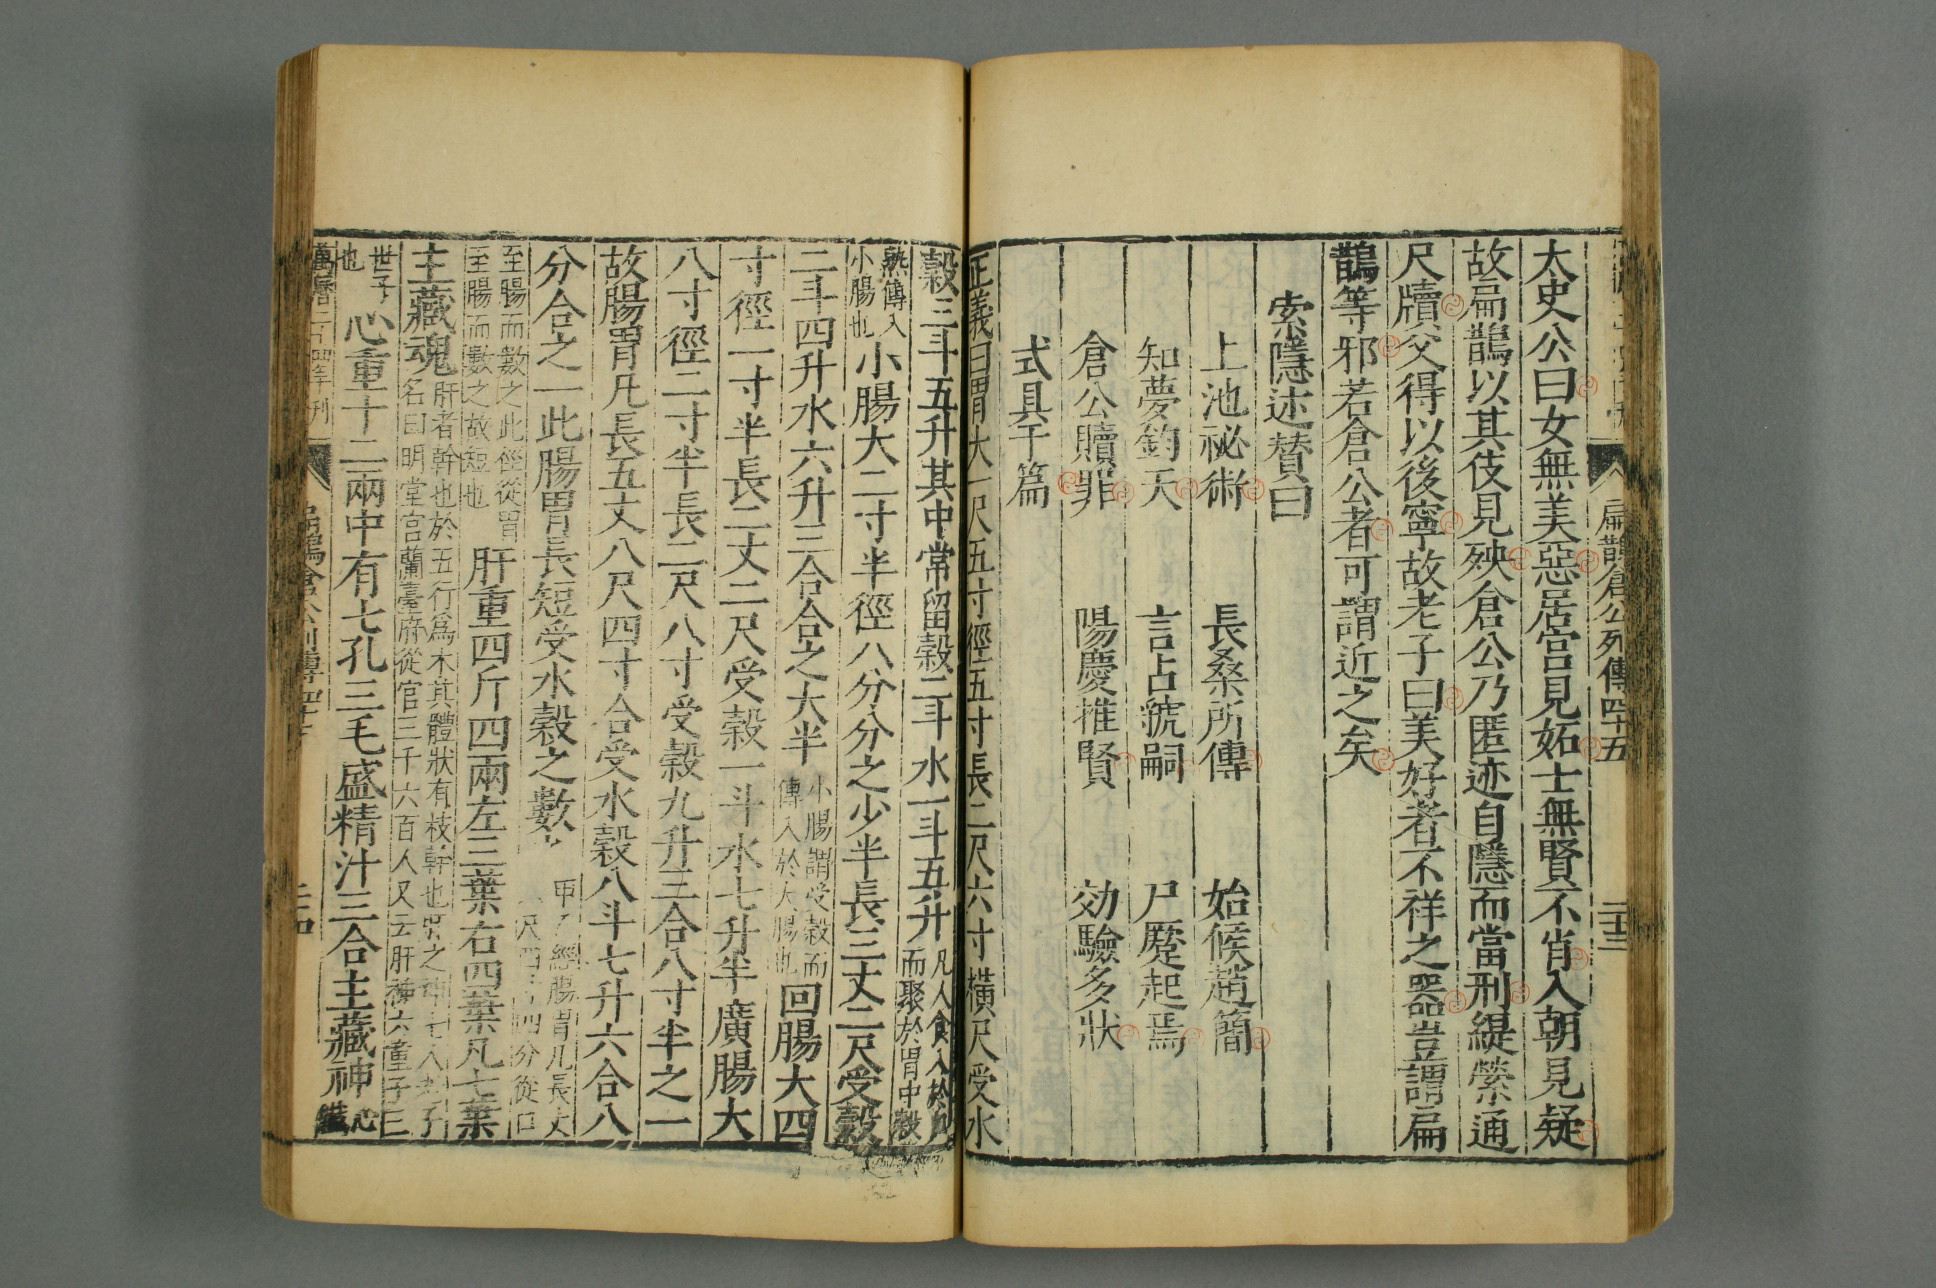 扁鵲倉公列傳四十五
二十三
太史公曰女無美惡居宮見妬士無賢不肖入朝見疑
故扁鵲以其伎見殃倉公乃匿迹自隱而當刑緹縈通
尺牘父得以後寧故老子曰美好者不祥之器豈謂扁
鵲等邪若倉公者可謂近之矣
索隱述贊曰
上池祕術 長桑所傳 始候趙簡
知夢鈞天 言占虢嗣 尸蹷起焉
倉公贖罪 陽慶推賢 効驗多狀
式具于篇
正義曰胃大一尺五寸徑五寸長二尺六寸橫尺受水
穀三斗五升其中常留穀二斗水一斗五升
凡人食入於
而聚於胃中穀
熟傳入
小腸也
小腸大二寸半徑八分分之少半長三丈二尺受穀
二斗四升水六升三合合之大半
小腸謂受穀而
傳入於大腸也
回腸大四
寸徑一寸半長二丈二尺受穀一斗水七升半廣腸大
八寸徑二寸半長二尺八寸受穀九升三合八寸半之一
故腸胃凡長五丈八尺四寸合受水穀八斗七升六合八
分合之一此腸胃長短受水穀之數
甲 經腸胃凡長丈
尺四寸四分從口
至腸而數之此徑從胃
至腸而數之故短也
肝重四斤四兩左三葉右四葉凡七葉
主藏魂
肝者幹也於五行爲木其體狀有枝幹也肝之神七人老子
名曰明堂宮蘭臺府從官三千六百人又云肝神六童子三
世子
也
心重十二兩中有七孔三毛盛精汁三合主藏神
心
纖
萬曆二十四年刊
扁鵲倉公列傳四十五
二十四